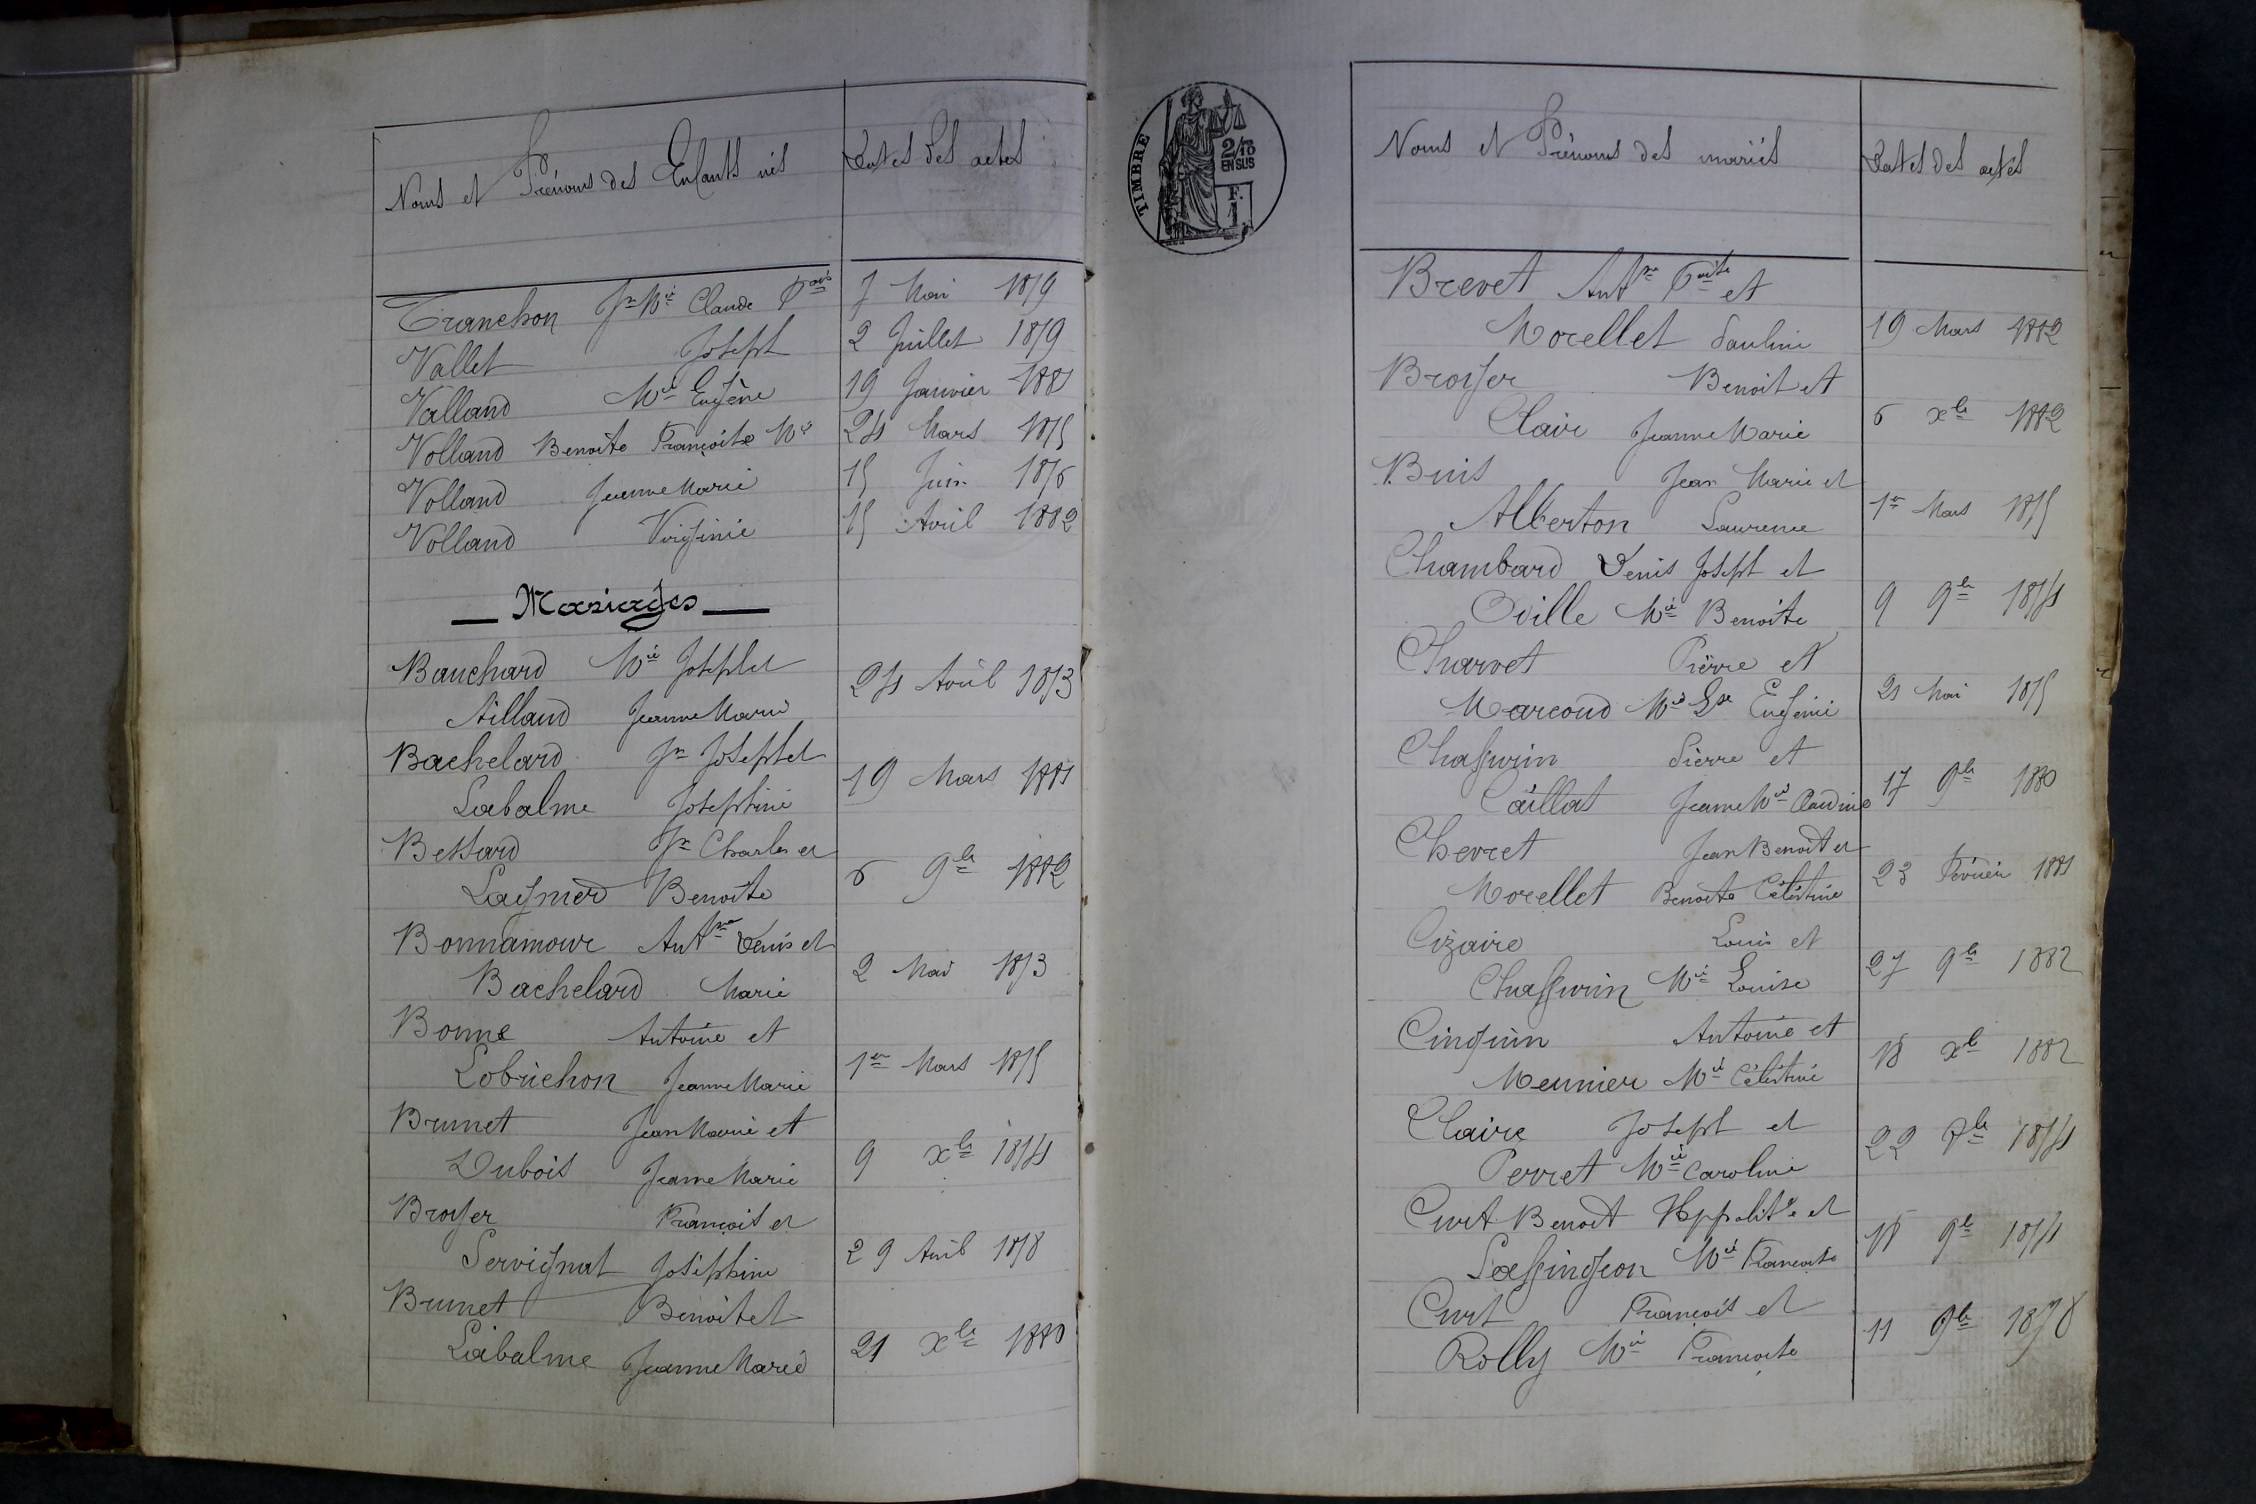 Noms et Prénoms des Enfants nés Dates des actes
Tranchon Jn Mie Claude Fçois 7 Mai 1879
Vallet Joseph 2 Juillet 1879
Valland Mie Eugène 19 Janvier 1881
Volland Benoite Françoise Mie 24 Mars 1875
Volland Jeanne Marie 15 Juin 1876
Volland Virginie 15 Avril 1882
Mariages
Bauchard Mie Joseph et
Aillaud Jeanne Marie 24 Avril 1873
Bachelard Jn Joseph et
Labalme Joséphine 19 Mars 1881
Bessard Jn Charles et
Lagnier Benoite 6 9bre 1882
Bonnamour Antne Denis et
Bachelard Marie 2 Mai 1873
Bonne Antoine et
Lobrichon Jeanne Marie 1er Mars 1875
Brunet Jean Marie et
Dubois Jeanne Marie 9 xbre 1874
Broyer François et
Servignat Joséphine 29 Avril 1878
Brunet Benoit et
Labalme Jeanne Marie 21 xbre 1880
TIMBRE
2/10
EN SUS
F.
1.
Noms et Prénoms des mariés Dates des actes
Brevet Antne et
Morellet Pauline 19 Mars 1882
Broyer Benoit et
Claire Jeanne Marie 6 xbre 1882
Buis Jean Marie et
Alberton Laurence 1er Mars 1875
Chambard Denis Joseph et
Oville Mie Benoite 9 9bre 1874
Charvet Pierre et
Marcoud Mie Lse Eugénie 21 Mai 1875
Chassurin Pierre et
Caillat Jeanne Mie Claudine 17 9bre 1880
Chevret Jean Benoit et
Morellet Benoite Célestine 23 Février 1881
Cizaire Louis et
Chassurin Mie Louise 27 9bre 1882
Cinquin Antoine et
Meunier Mie Célestine 18 xbre 1882
Claire Joseph et
Perret Mie Caroline 22 7bre 1874
Curt Benoit Hyppolite et
Lassingeon Mie Françoise 9bre 1874
Curt François et
Rolly Mie Françoise 11 9bre 1878